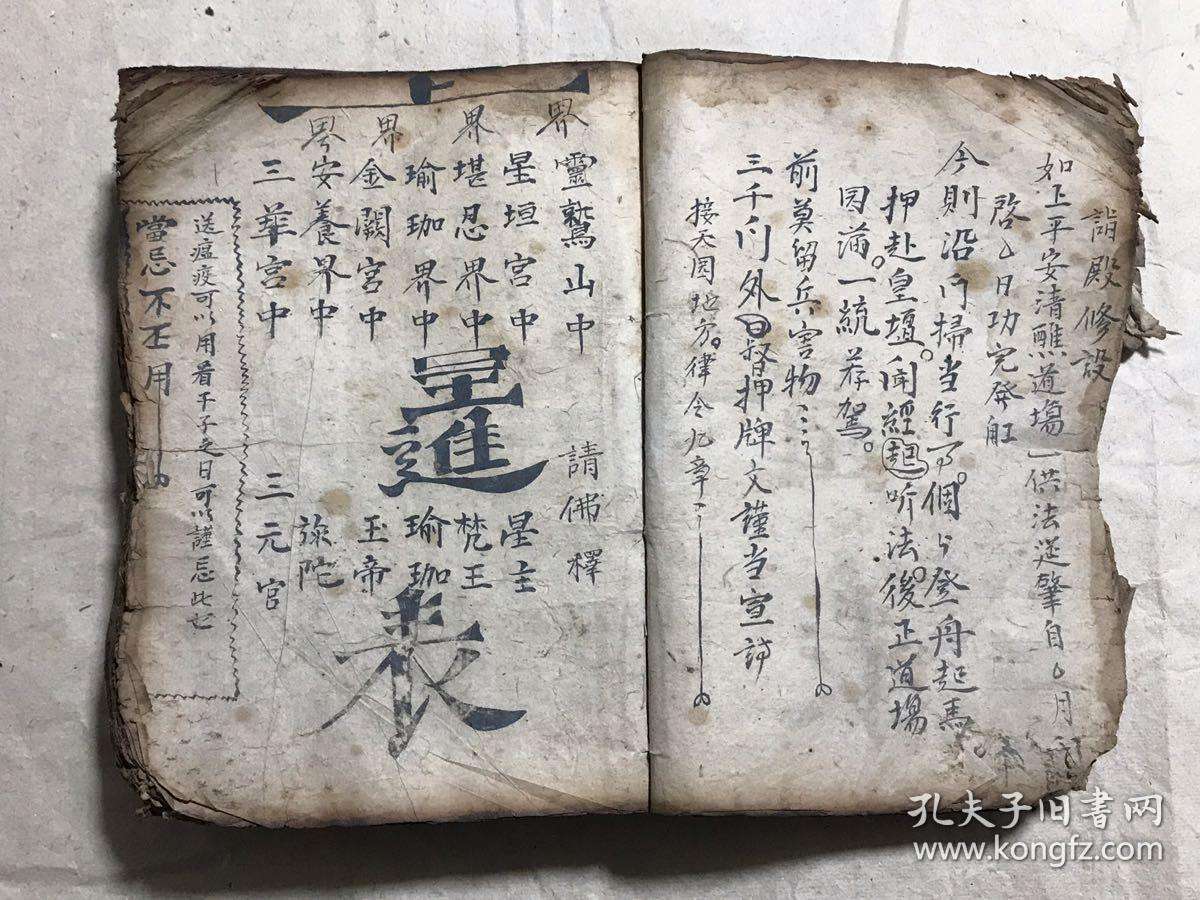 詣殿修設
如上平安清醮道場一供法逆肇自乙月
啓乙日功完発舡
今則沿门掃当行 個 登舟起馬
押赴皇壇。闻經起听法。後正道場
因蒲一統 荐駕。
前莫留兵害物
三千门外曰督押牌文謹当宣
接天圆地方。律令九章
界靈鷲山中 請佛釋
星垣宫中 星主
界堪忍界中 梵王
瑜珈界中 瑜珈
界金闕宫中 玉帝
界安養界中 弥陀
三華宫中 三元官
呈進表
送瘟疫可以用看千子之日可以謹忌此
當忌不 用
孔夫子旧书网
www.kongfz.com